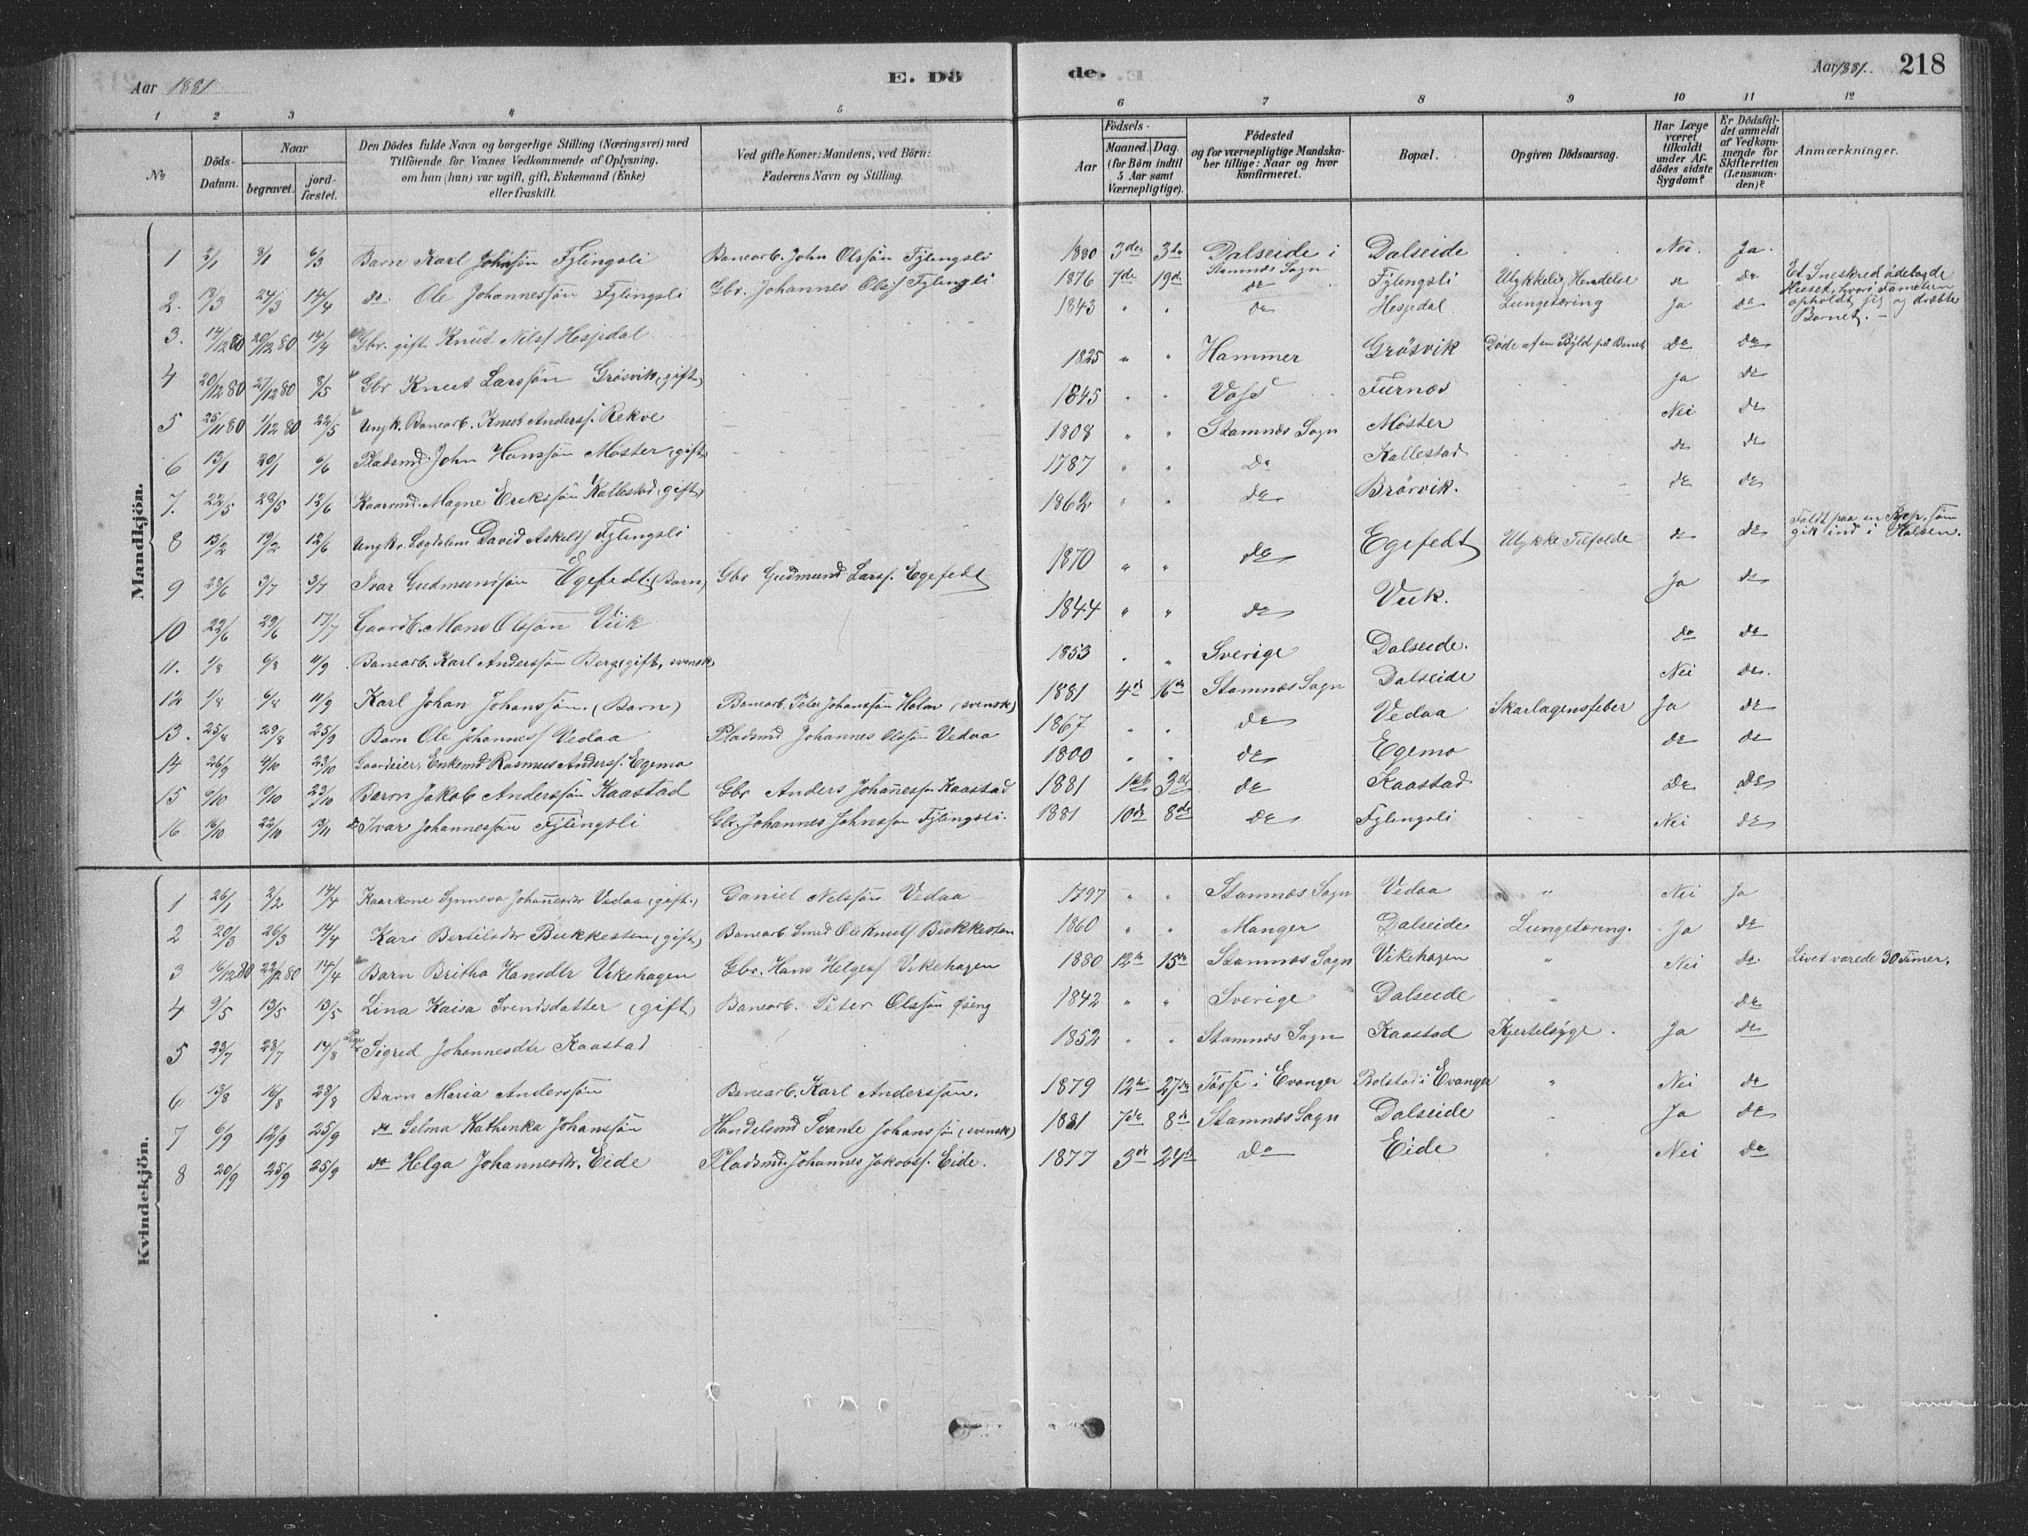 Aar 1881
E. Dö
de.
Aar 1881.
218
1 2 3 4 5 6 7 8 9 10 11 12
No
Döds-Datum.
Naar
begravet.
jordfæstet.
Den Dödes fulde Navn og borgerlige Stilling (Næringsvei) med
Tilföiende for Voxnes Vedkommende af Oplysning.
om han (hun) var ugift, gift, Enkemand (Enke)
eller fraskilt.
Ved gifte Koner: Mandens, ved Börn:
Faderens Navn og Stilling.
Aar
Födsels-
Maaned. Dag.
(for Börn indtil
5 Aar samt
Værnepligtige).
Födested
og for værnepligtige Mandska-
ber tillige: Naar og hvor
konfirmeret.
Bopæl.
Opgiven Dödsaarsag.
Har Læge
været
tilkaldt
under Af-
dödes sidste
Sygdom?
Er Dödsfal-
det anmeldt
af Vedkom-
mende for
Skifteretten
(Lensman-
den)?
Anmærkninger.
Mandkjön.
1 2/1 8/1 6/3 Barn Karl Johnsön Fylingsli Banearb. John Olssön Fylingsli 1880 3de 3die Dalseide i Stamnæs Sogn Dalseide Nei. Ja.
2. 18/3 24/3 14/4 do. Ole Johannessön Fylingsli Gbr. Johannes Olsf Fylingsli 1876 7de 19de do Fylingsli Ulykkelig Hendelse do do Et Sneskred ödelagde Huset, hvori Familien opholdt sig og dræbte Barnet. –
3. 14/12 80 20/12 80 14/4 Gbr. gift Knut Nilsf Hesjedal 1843 " " do Hesjedal Lungetæring Ja do
4 20/12 80 27/12 80 8/5 Gbr Knut Larssön Grösvik (gift) 1825 " " Hammer Grösvik Döde af en Byld på Benet do do
5 25/11 80 1/12 80 22/5 Ungk. Banearb. Knut Anderss. Rekve 1845 " " Voss Furnæs Ja do
6 13/1 20/1 6/6 Pladsmd. John Hanssön Möster (gift) 1808 " " Stamnæs Sogn Möster Nei do
7. 22/5 28/5 12/6 Kaarmd. Magne Erikssön Kallestad (gift) 1787 " " Do Kallestad do do
8 13/2 19/2 12/6 Ungkr. Lægdslem David Askelds Fylingsli 1862 " " do Brörvik. do do
9 28/6 3/7 3/7 Ivar Gudmundssön Egefedt. (Barn) Gbr Gudmund Larss. Egefedt 1870 " " do Egefedt Ulykke Tilfælde do do Faldt paa en Rep, som gik ind i Halsen.
10 22/6 29/6 17/7 Gaardb. Mons Olssön Viik 1844 " " do Viik. Ja do
11. 1/8 6/8 11/9 Banearb. Karl Anderssön Berg (gift, svensk) 1853 " " Sverige Dalseide. do do
12 1/8 6/8 11/9 Karl Johan Johanssön. (Barn) Banearb. Peter Johanssön Holm (svensk) 1881 4de 16de Stamnæs Sogn Dalseide Nei do.
13. 25/8 29/8 25/9 Barn Ole Johanness Vedaa Pladsmd Johannes Olssön Vedaa 1867 " " do Vedaa Skarlagensfeber Ja do
14 26/9 4/10 23/10 Gaardeier, Enkemd Rasmus Anderss. Egemo 1800 " " do Egemo do do
15 6/10 9/10 23/10 Barn Jakob Anderssön Kaastad Gbr Anders Johannessön Kaastad 1881 1ste 3de do Kaastad do do
16 16/10 22/10 13/11 do Ivar Johannessön Fylingsli Gbr. Johannes Johnssön Fylingsli. 1881 10de 8de do Fylingsli Nei do
Kvindekjön.
1 26/1 2/2 14/4 Kaarkone Synneva Johannesdr Vedaa (gift.) Daniel Nelssön Vedaa 1797 " " Stamnæs Sogn Vedaa " Nei Ja
2 20/3 26/3 14/4 Kari Bertilsdr Bukkesten (gift) Banearb. Smed Ole Knuts Bukkesten 1860 " " Manger Dalseide Lungetæring. Ja do
3 16/12 80 22/12 80 14/4 Barn Britha Hansdtr Vikehagen Gbr. Hans Helges Vikehagen 1880 12te 15de Stamnæs Sogn Vikehagen " Nei do. Livet varede 30 Timer.
4 9/5 13/5 13/5 Lina Kaisa Svendsdatter (gift) Banearb. Peter Olssön Öseng 1842 " " Sverige Dalseide " do
5 23/7 28/7 14/8 Pige Sigred Johannesdtr Kaastad 1852 " " Stamnæs Sogn Kaastad Kjertelsyge. Ja do
6 13/8 16/8 28/8 Barn Maria Anderssön Banearb. Karl Anderssön. 1879 12te 27de Tösse i Evanger Bolstad i Evanger " Nei do
7 6/9 12/9 25/9 do Selma Kathinka Johanssön Handelsmd Svante Johanssön (svensk) 1881 7de 8de Stamnæs Sogn Dalseide Ja do
8 20/9 25/9 25/9 do Helga Johannesdtr. Eide Pladsmd. Johannes Jakobss. Eide. 1877 3de 24de Do Eide Nei do